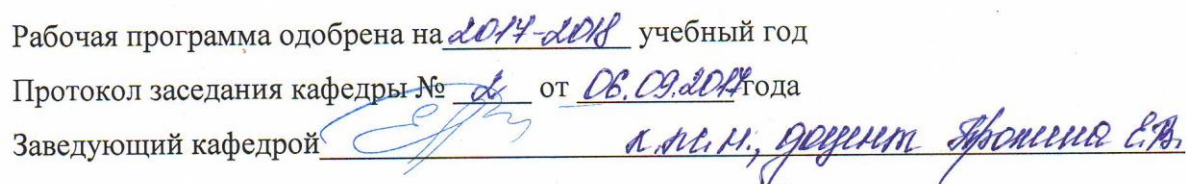 Рабочая программа одобрена на 2017-2018 учебный год
Протокол заседания кафедры № 2 от 06.09.2017 года
Заведующий кафедрой к.м.н., доцент Е.В.